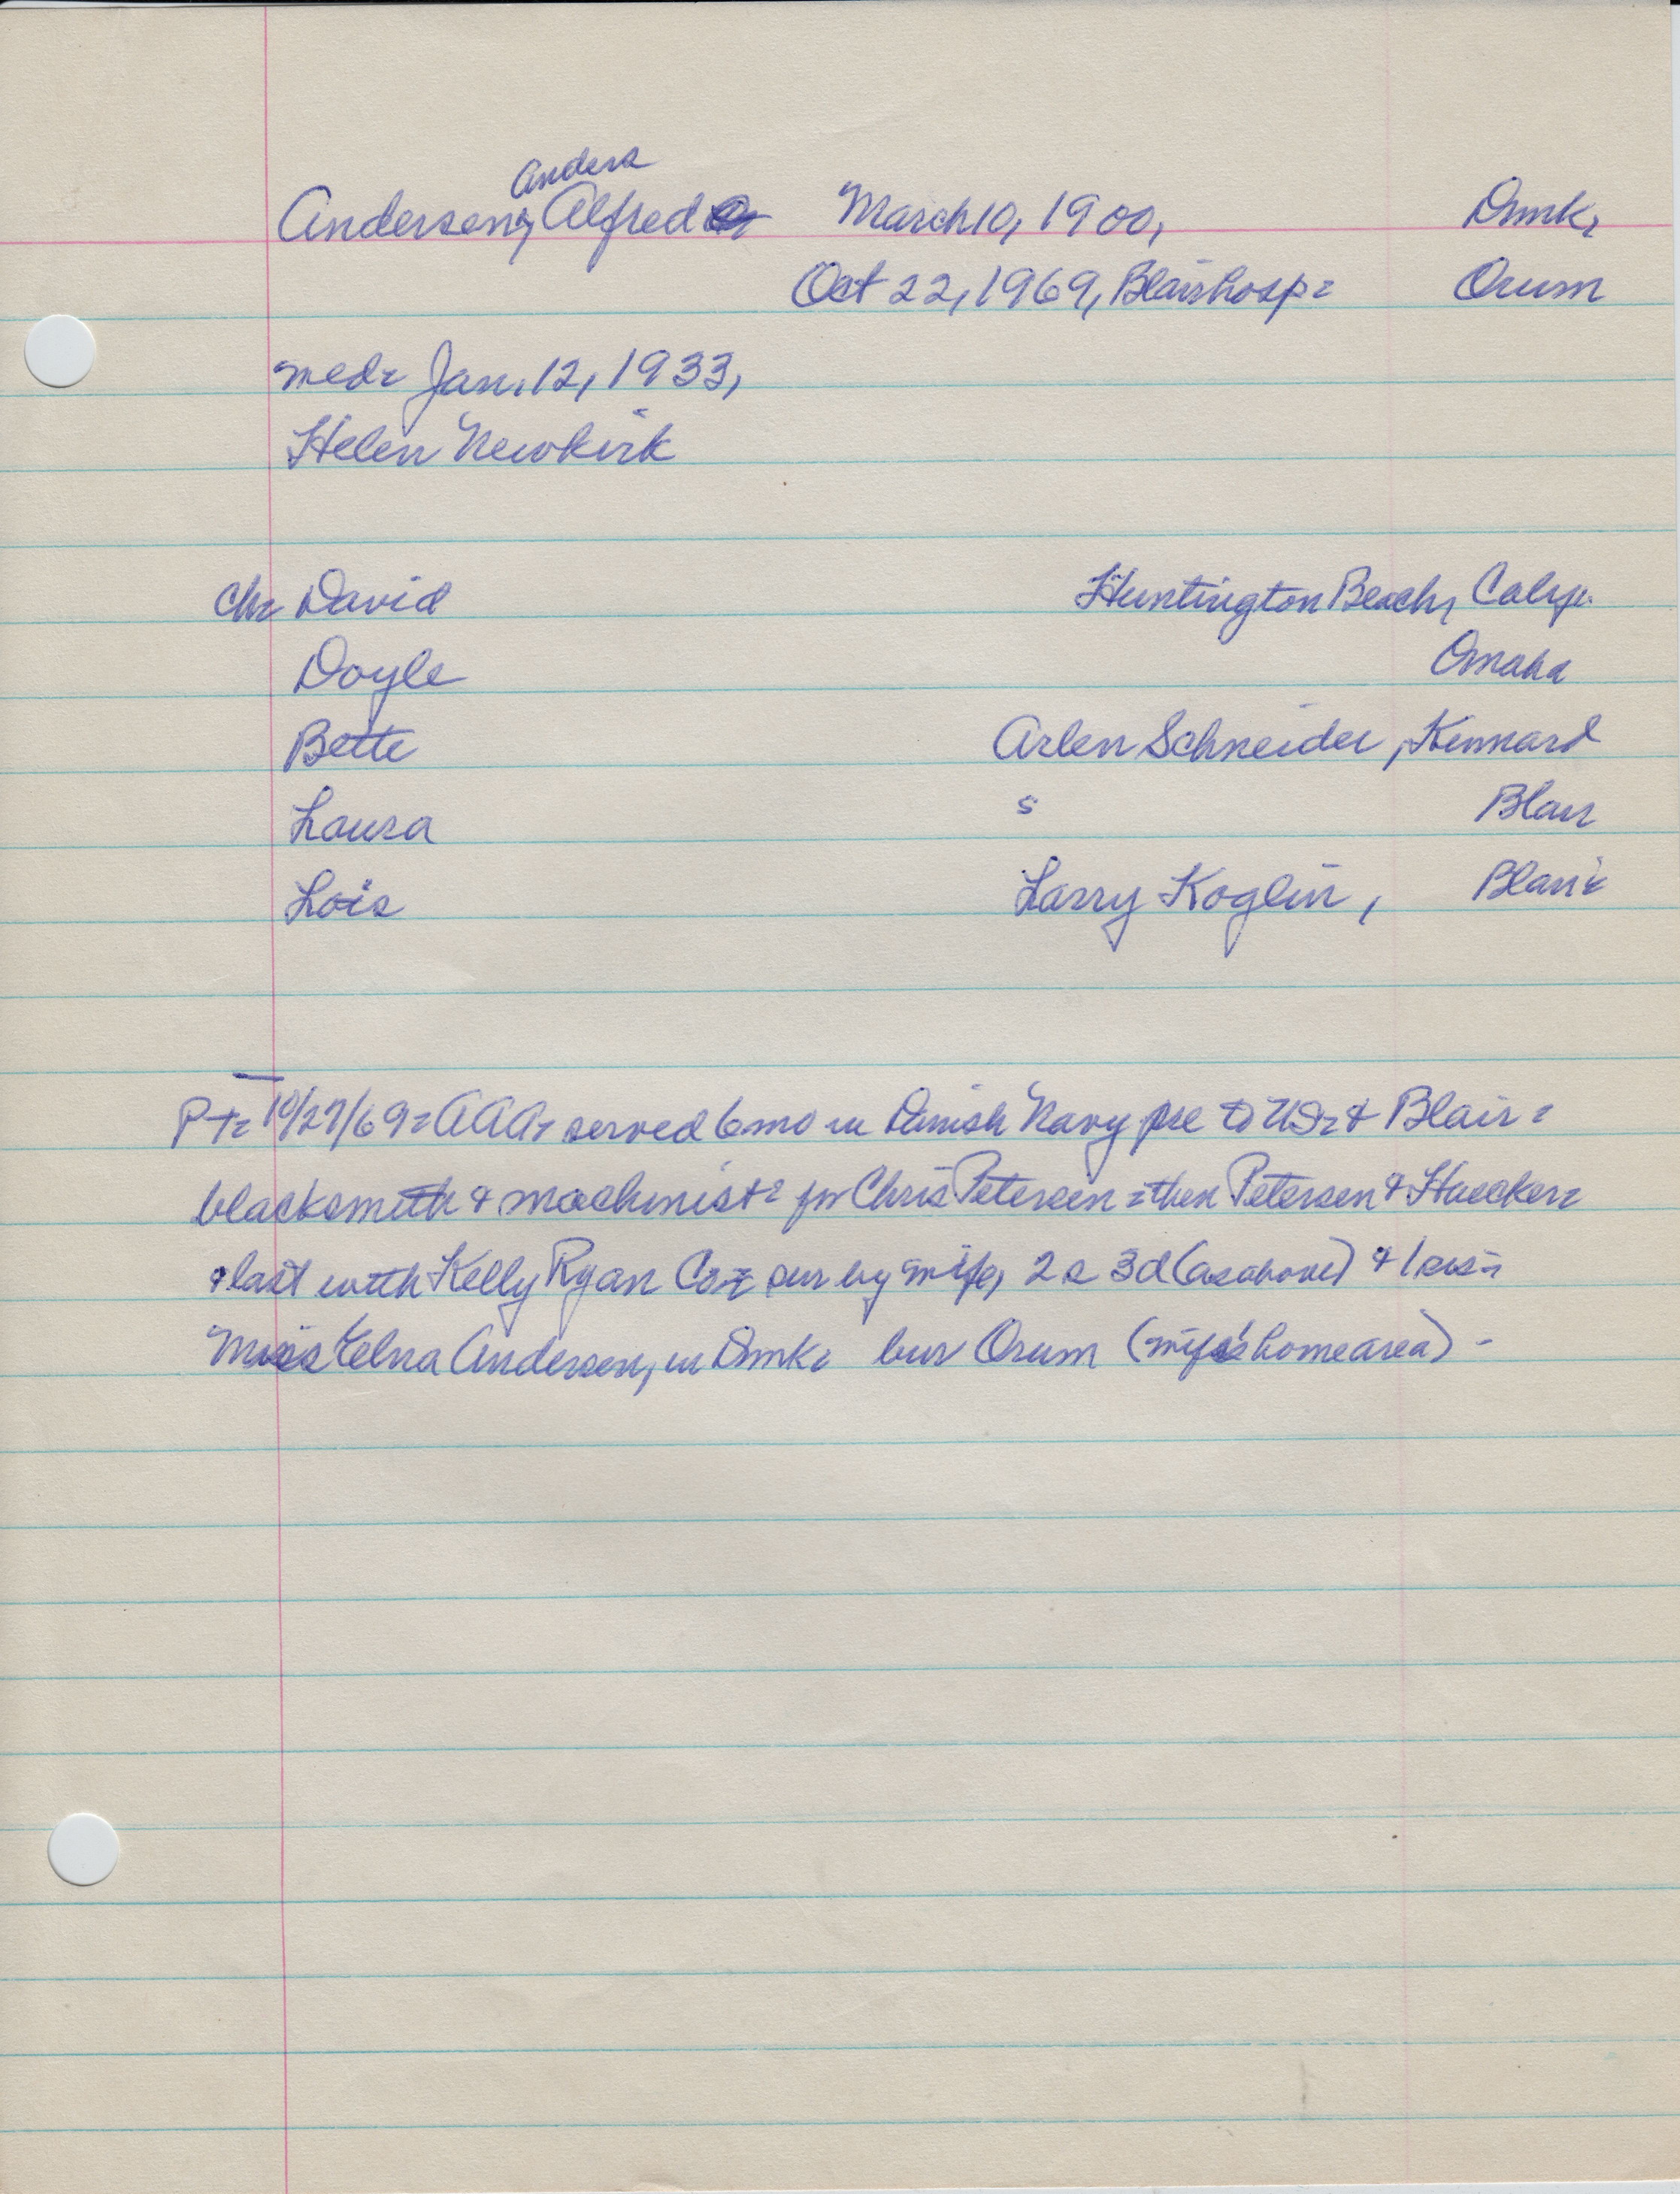 Anders
Andersen, Alfred March 10, 1900, Dmk,
Oct 22, 1969, Blair hosp - Orum
med - Jan. 12, 1933,
Helen Newkirk
Ch - David Huntington Beach, Calif.
Doyle Omaha
Bette Arlen Schneider, Kennard
Laura s Blair
Lois Larry Koglin, Blair -
PT - 10/27/69 - AAA - served 6 mo in Danish Navy pre to US - & Blair -
blacksmith & machinist - for Chris Petersen - then Petersen & Haecker -
& last with Kelly Ryan Co - sur by wife, 2 s 3d (as above) & 1 sis -
Miss Elna Andersen, in Dmk - bur Orum (wife's home area) -